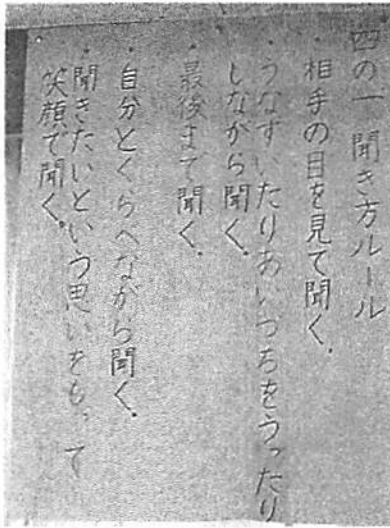 四の一 聞き方ルール
・相手の目を見て聞く。
・うなずいたりあいづちをうったり
しながら聞く。
・最後まで聞く。
・自分とくらべながら聞く。
・聞きたいという思いをもって
笑顔で聞く。